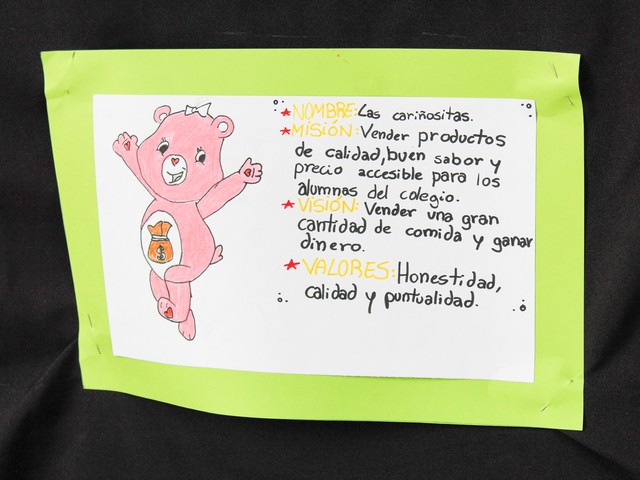 NOMBRE: Las cariñositas.
MISIÓN: Vender productos
de calidad, buen sabor y
precio accesible para los
alumnas del colegio.
VISIÓN: Vender una gran
cantidad de comida y ganar
dinero.
VALORES: Honestidad,
calidad y puntualidad.
$